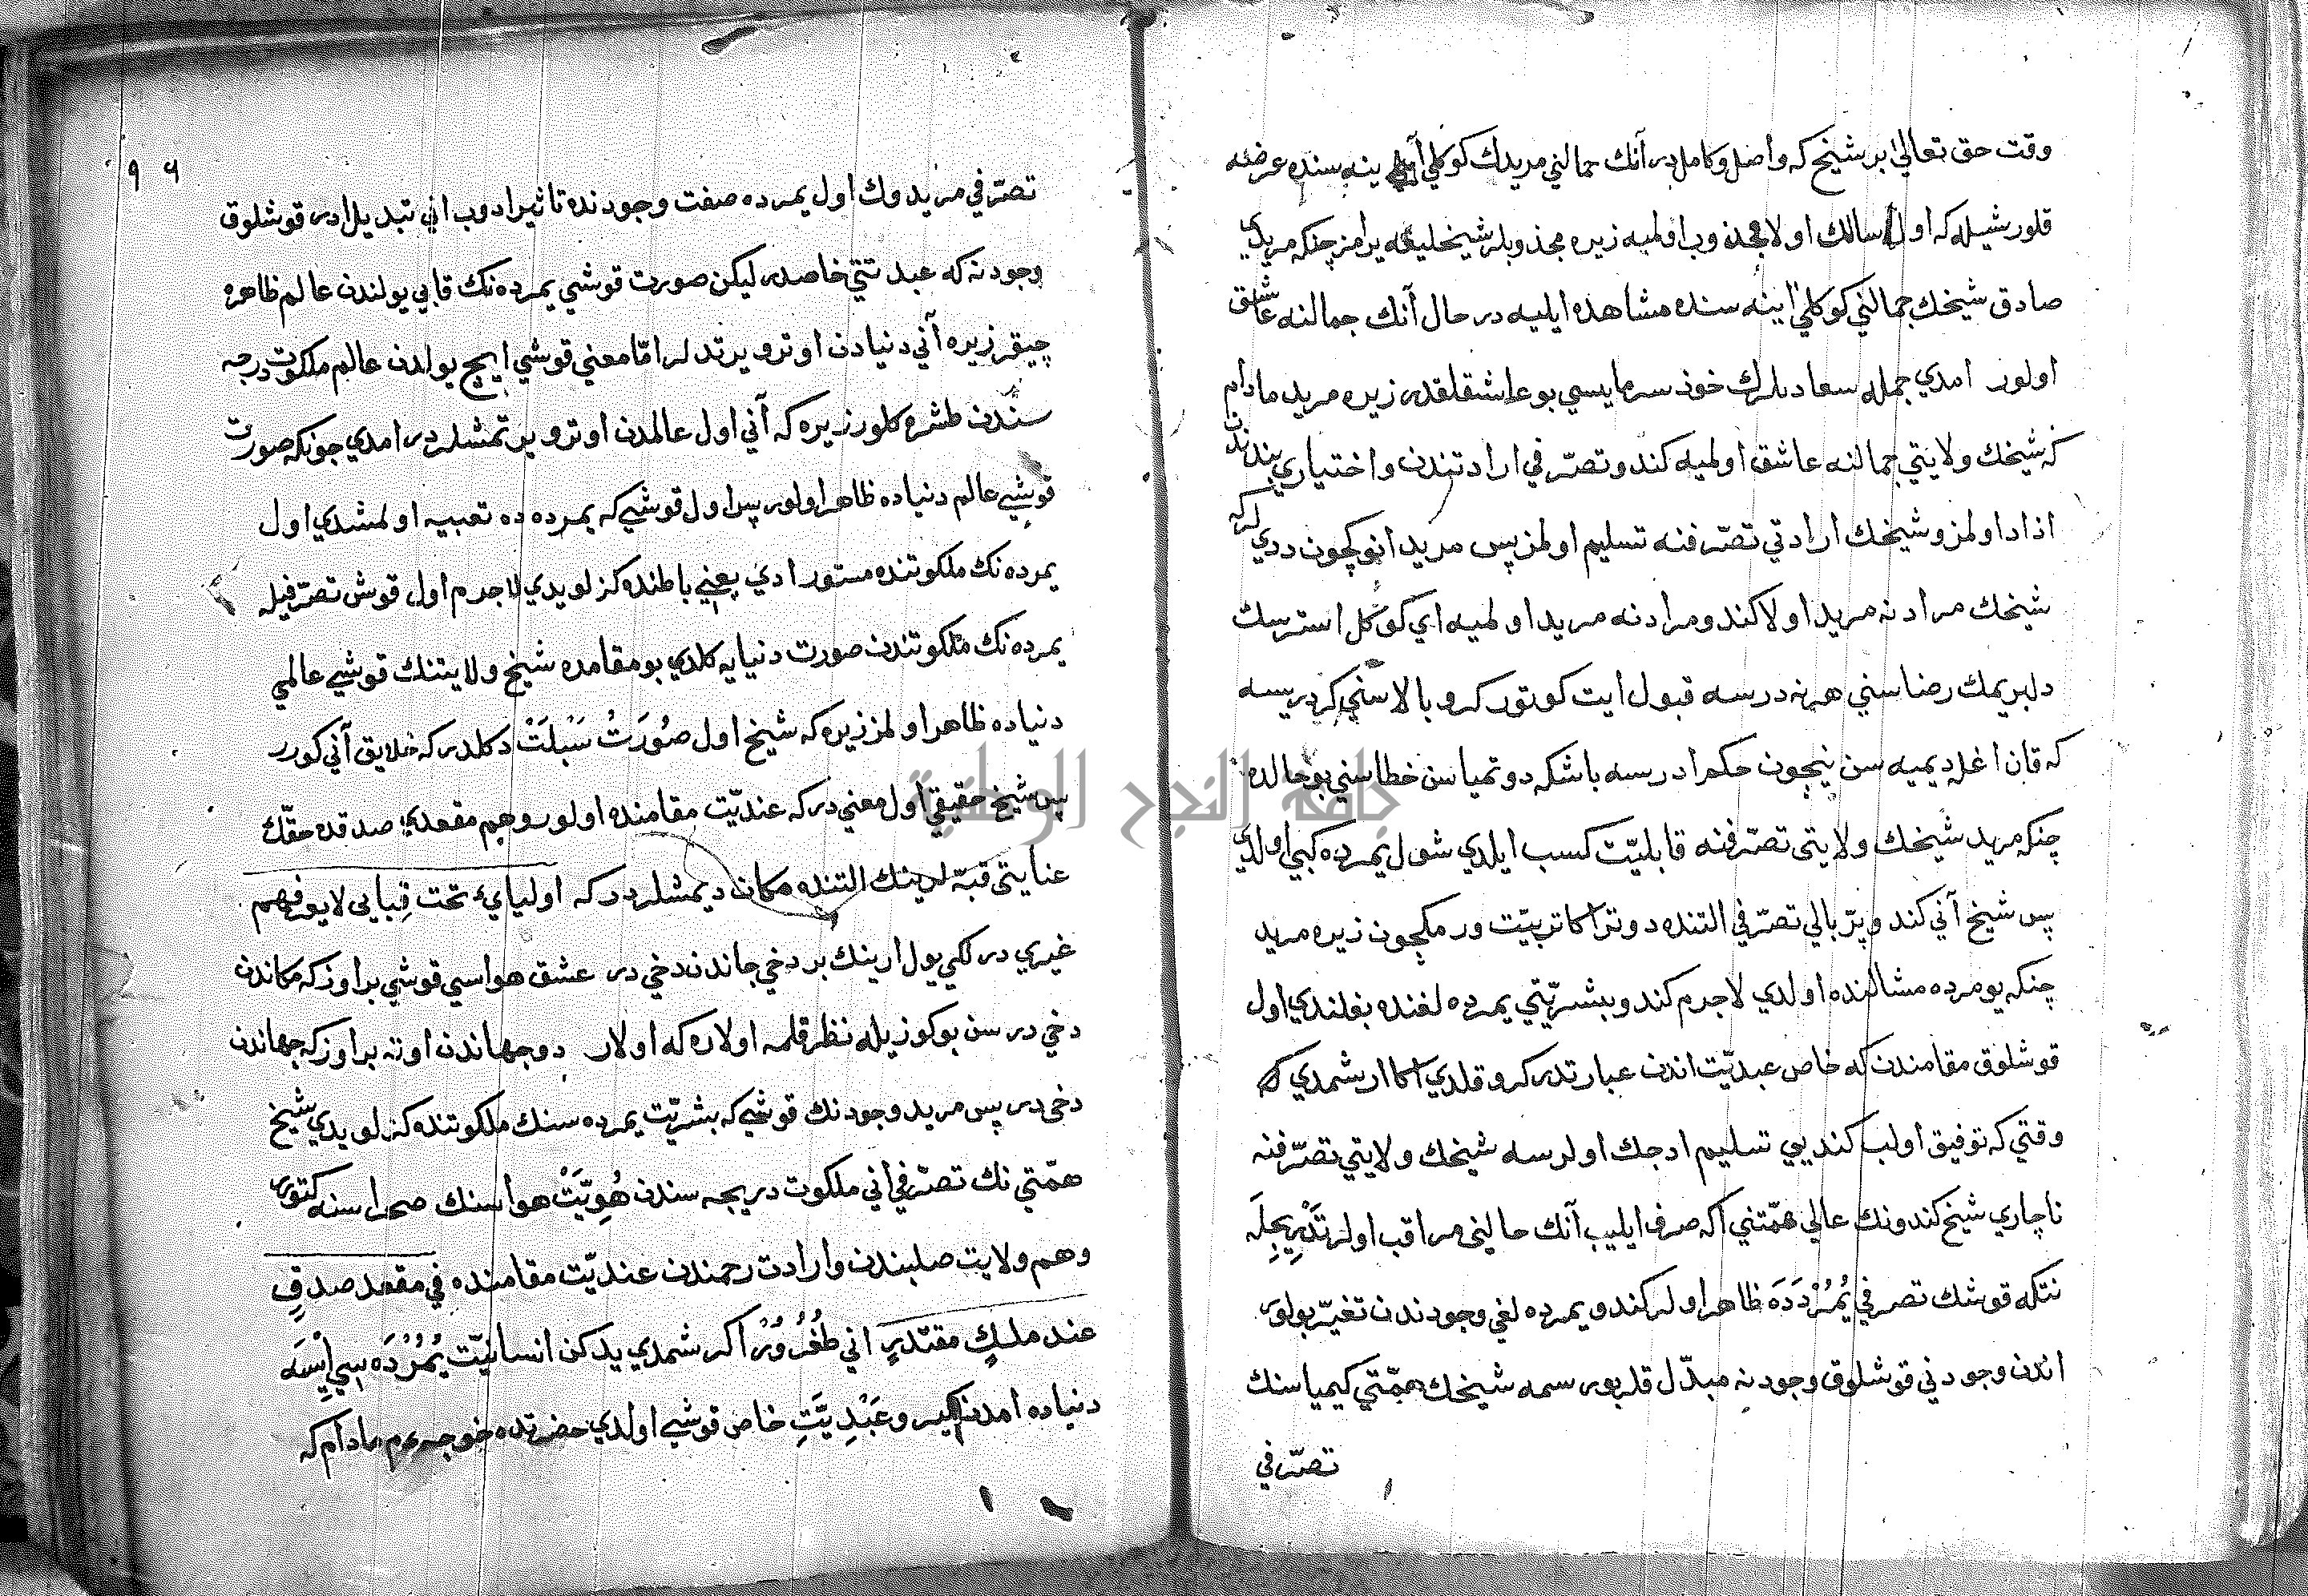 وقت حق تعالى بر شيخ كه واصل و كامل در آنك جمالني مريدك كوكلي اينه سنده عرضه
قلور شيله كه اول سالك اولا مجذوب اولميه زيره مجذوبلر شيخليغه يرامز چنكه مريدي
صادق شيخك جمالني كوكلي اينه سنده مشاهده ايليه در حال آنك جمالنه عاشق
اولور امدي جمله سعادتلرك خود سرمايسي بو عاشقلقدر زيره مريد مادام
كه شيخك ولايتي جمالنه عاشق اولميه كندو تصرّفي ارادتندن و اختياري بندندن
اذاد اولمز و شيخك ارادتي تصرّفنه تسليم اولمز پس مريد انوكچون ددي لر كه
شيخك مرادنه مريد اولا كندو مرادنه مريد اولميه اي كوكل استرسك
دلبريمك رضاسني هر نه درسه قبول ايت كوتور كرو بالاسني كردريسه
كه قان اغله ديميه سن نيچون حكم ادرسه باشكه دوتمياسن خطاسني بو حالده
چنكه مريد شيخك ولايتى تصرّفنه قابليّت كسب ايلدي شول يمرده كبي اولدي
پس شيخ آني كندو پرّ بالي تصرّفي التنده دوتر اكا تربيّت ورمكچون زيره مريد
چنكه يومرده مثالنده اولدي لاجرم كندو بشريّتي يمرده لغنده بغلندي اول
قوشلوق مقامندن كه خاص عبديّت اندن عبارتدر كرو قلدي اكا ارشمدي كه
وقتي كه توفيق اولب كنديي تسليم ادجك اولرسه شيخك ولايتي تصرّفنه
ناچاري شيخ كندونك عالي همّتني اكه صرف ايليب آنك حالني مراقب اولر تَدْرِيجِلَه
نتكه قوشك تصرفي يُمُرْدَدَه ظاهر اولر كندو يمرده لغي وجودندن تغيّر بولور
اندن وجودني قوشلوق وجودنه مبدّل قلربور سمه شيخك همّتي كيمياسنك
تصرّفي
٩٦
تصرّفي مريدوك اول يمرده صفت وجودنده تاثير ادوب اني تبديل ادر قوشلوق
وجودنه كه عبدتتي خاصدر ليكن صورت قوشي يمرده نك قابي يولندن عالم ظاهره
چيقر زيره آني دنيادن اوترو يرتدلر امّا معني قوشي ايچ يولدن عالم ملكوت درجه
سندن طشره كلور زيره كه آني اول عالمدن اوترو يرتمشلردر امدي چونكه صورت
قوشي عالم دنياده ظاهر اولور پس اول قوشي كه يمرده ده تعبيه اولمشدي اول
يمرده نك ملكوتنده مستور ادي يعني باطنده كزلويدي لاجرم اول قوش تصرّفيله
يمرده نك ملكوتندن صورت دنيايه كلدي بو مقامده شيخ ولايتنك قوشي عالمي
دنياده ظاهر اولمز زيره كه شيخ اول صُورَتُ سَبْلَتْ دكلدر كه خلايق آني كورر
پس شيخ حقيقي اول معني در كه عنديّت مقامنده اولور و هم مقعدي صدقده حقّك
عنايتى قبّه لرينك التنده مكان ديمشلردر كه اوليايى تحت قِبايى لا يعرفهم
غيري در لكي يول ارينك بر دخي جاندن دخي در عشق هواسي قوشي بر اوزكه مكاندن
دخي در سن بو كوزيله نظر قلمه اولاره كه اولار دو جهاندن اوته بر اوزكه جهاندن
دخى در پس مريد وجودنك قوشي كه بشريّت يمرده سنك ملكوتنده كزلويدي شيخ
همّتي نك تصرّفي اني ملكوت دريجه سندن هُوِيَّتْ هواسنك صحراسنه كتورر
و هم ولايت صلبندن و ارادت رحمندن عنديّت مقامنده في مقعد صدقٍ
عند مليكٍ مقتدرٍ اني طُغُرُوُرْ اكر شمدي يدكن انسانيّت يُمُرْدَه سي اِيسَه
دنياده امدن كير و عَبْدِيَّتِ خاص قوشي اولدي حضرتده خوجه‌رم مادام كه